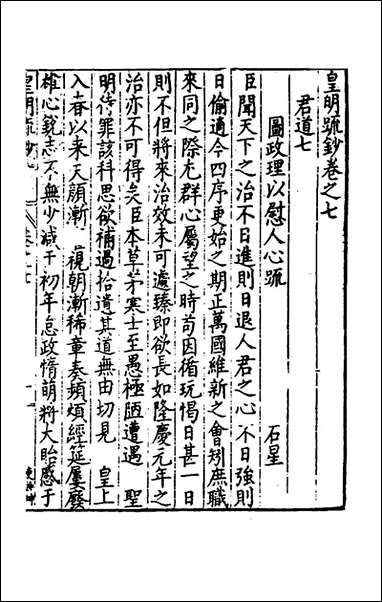 皇明疏鈔卷之七
君道七
圖政理以慰人心疏 石星
臣聞天下之治不日進則日退人君之心不日強則
日偷適今四序更始之期正萬國維新之會矧庶職
來同之際尤群心屬望之時苟因循玩愒日甚一日
則不但將來治效未可遽臻即欲長如隆慶元年之
治亦不可得矣臣本草茅寒士至愚極陋遭遇 聖
明待罪該科思欲補過拾遺其道無由切見 皇上
入春以来天顔漸 視朝漸稀章奏頻煩經筵屢廢
雄心銳志不無少減于初年怠政惰萌料大貽慼于
皇明疏鈔